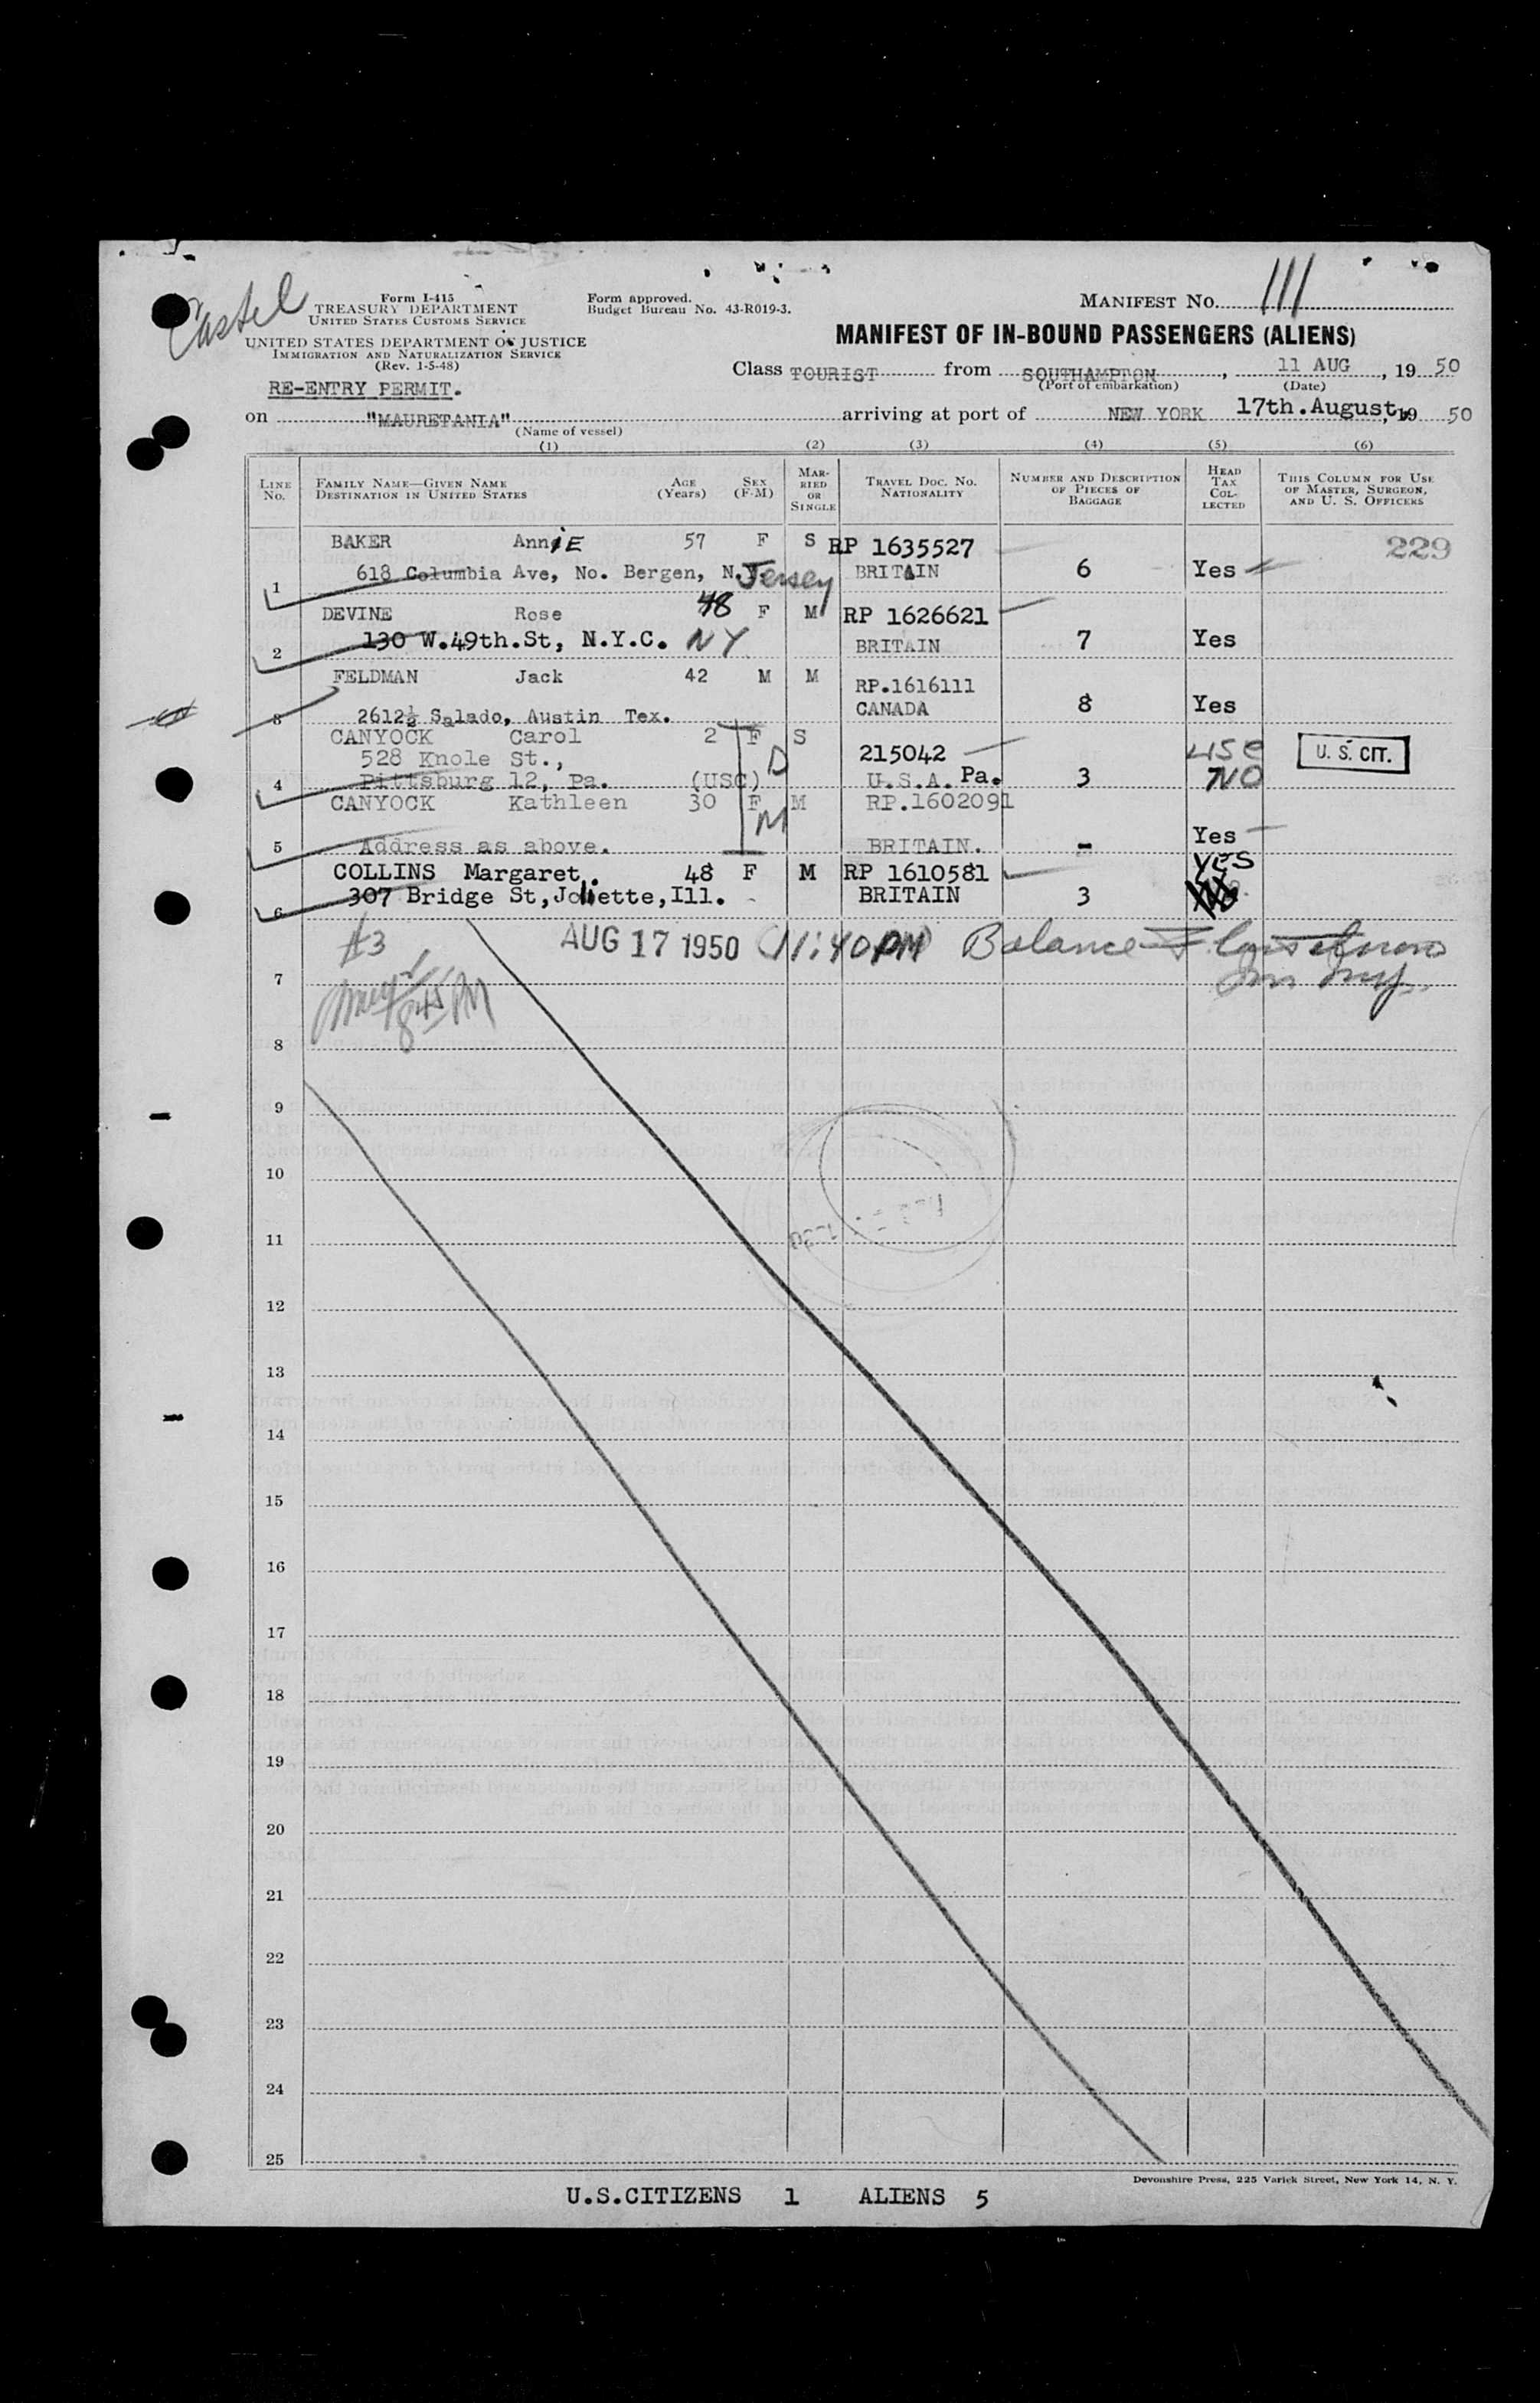 Castel
Form I-415
TREASURY DEPARTMENT
UNITED STATES CUSTOMS SERVICE
UNITED STATES DEPARTMENT OF JUSTICE
IMMIGRATION AND NATURALIZATION SERVICE
(Rev. 1-5-48)
Form approved.
Budget Bureau No. 43-R019-3.
MANIFEST NO. 111
MANIFEST OF IN-BOUND PASSENGERS (ALIENS)
Class TOURIST from SOUTHAMPTON, 11 AUG, 19 50
(Port of embarkation) (Date)
RE-ENTRY PERMIT.
on "MAURETANIA" arriving at port of NEW YORK 17th.August, 19 50
(Name of vessel)
(1) (2) (3) (4) (5) (6)
LINE NO. FAMILY NAME—GIVEN NAME DESTINATION IN UNITED STATES AGE (Years) SEX (F-M) MARRIED OR SINGLE TRAVEL DOC. NO. NATIONALITY NUMBER AND DESCRIPTION OF PIECES OF BAGGAGE HEAD TAX COLLECTED THIS COLUMN FOR USE OF MASTER, SURGEON, AND U. S. OFFICERS
BAKER AnnIE 57 F S RP 1635527 229
1 618 Columbia Ave, No. Bergen, N.Jersey BRITAIN 6 Yes
DEVINE Rose 48 F M RP 1626621
2 130 W.49th.St, N.Y.C. NY BRITAIN 7 Yes
FELDMAN Jack 42 M M RP.1616111
CANADA 8 Yes
3 2612½ Salado, Austin Tex.
CANYOCK Carol 2 F S
528 Knole St., D 215042 USC U. S. CIT.
4 Pittsburg 12, Pa. (USC) U.S.A. Pa. 3 NO
CANYOCK Kathleen 30 F M RP.1602091
M
5 Address as above. BRITAIN. - Yes
COLLINS Margaret. 48 F M RP 1610581 YES
6 307 Bridge St, Joliette, Ill. BRITAIN 3
#3 AUG 17 1950 (11:40 PM) Balance
7
845 PM
8
9
10
11
12
13
14
15
16
17
18
19
20
21
22
23
24
25
Devonshire Press, 225 Varick Street, New York 14, N. Y.
U.S.CITIZENS 1 ALIENS 5